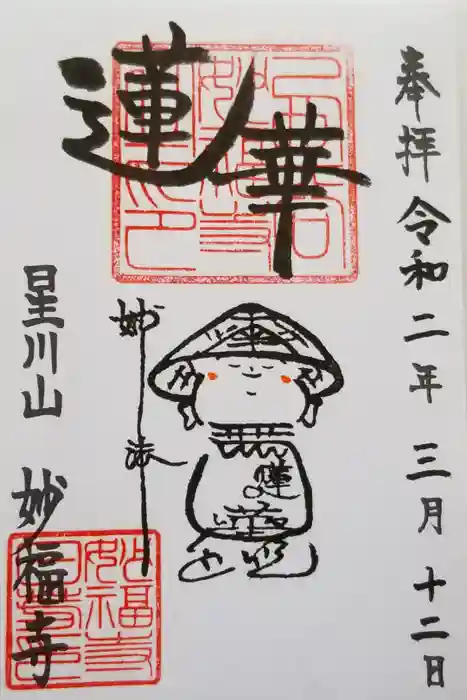 奉拝 令和二年 三月 十二日
蓮華
妙法
蓮
星川山 妙福寺
妙福寺